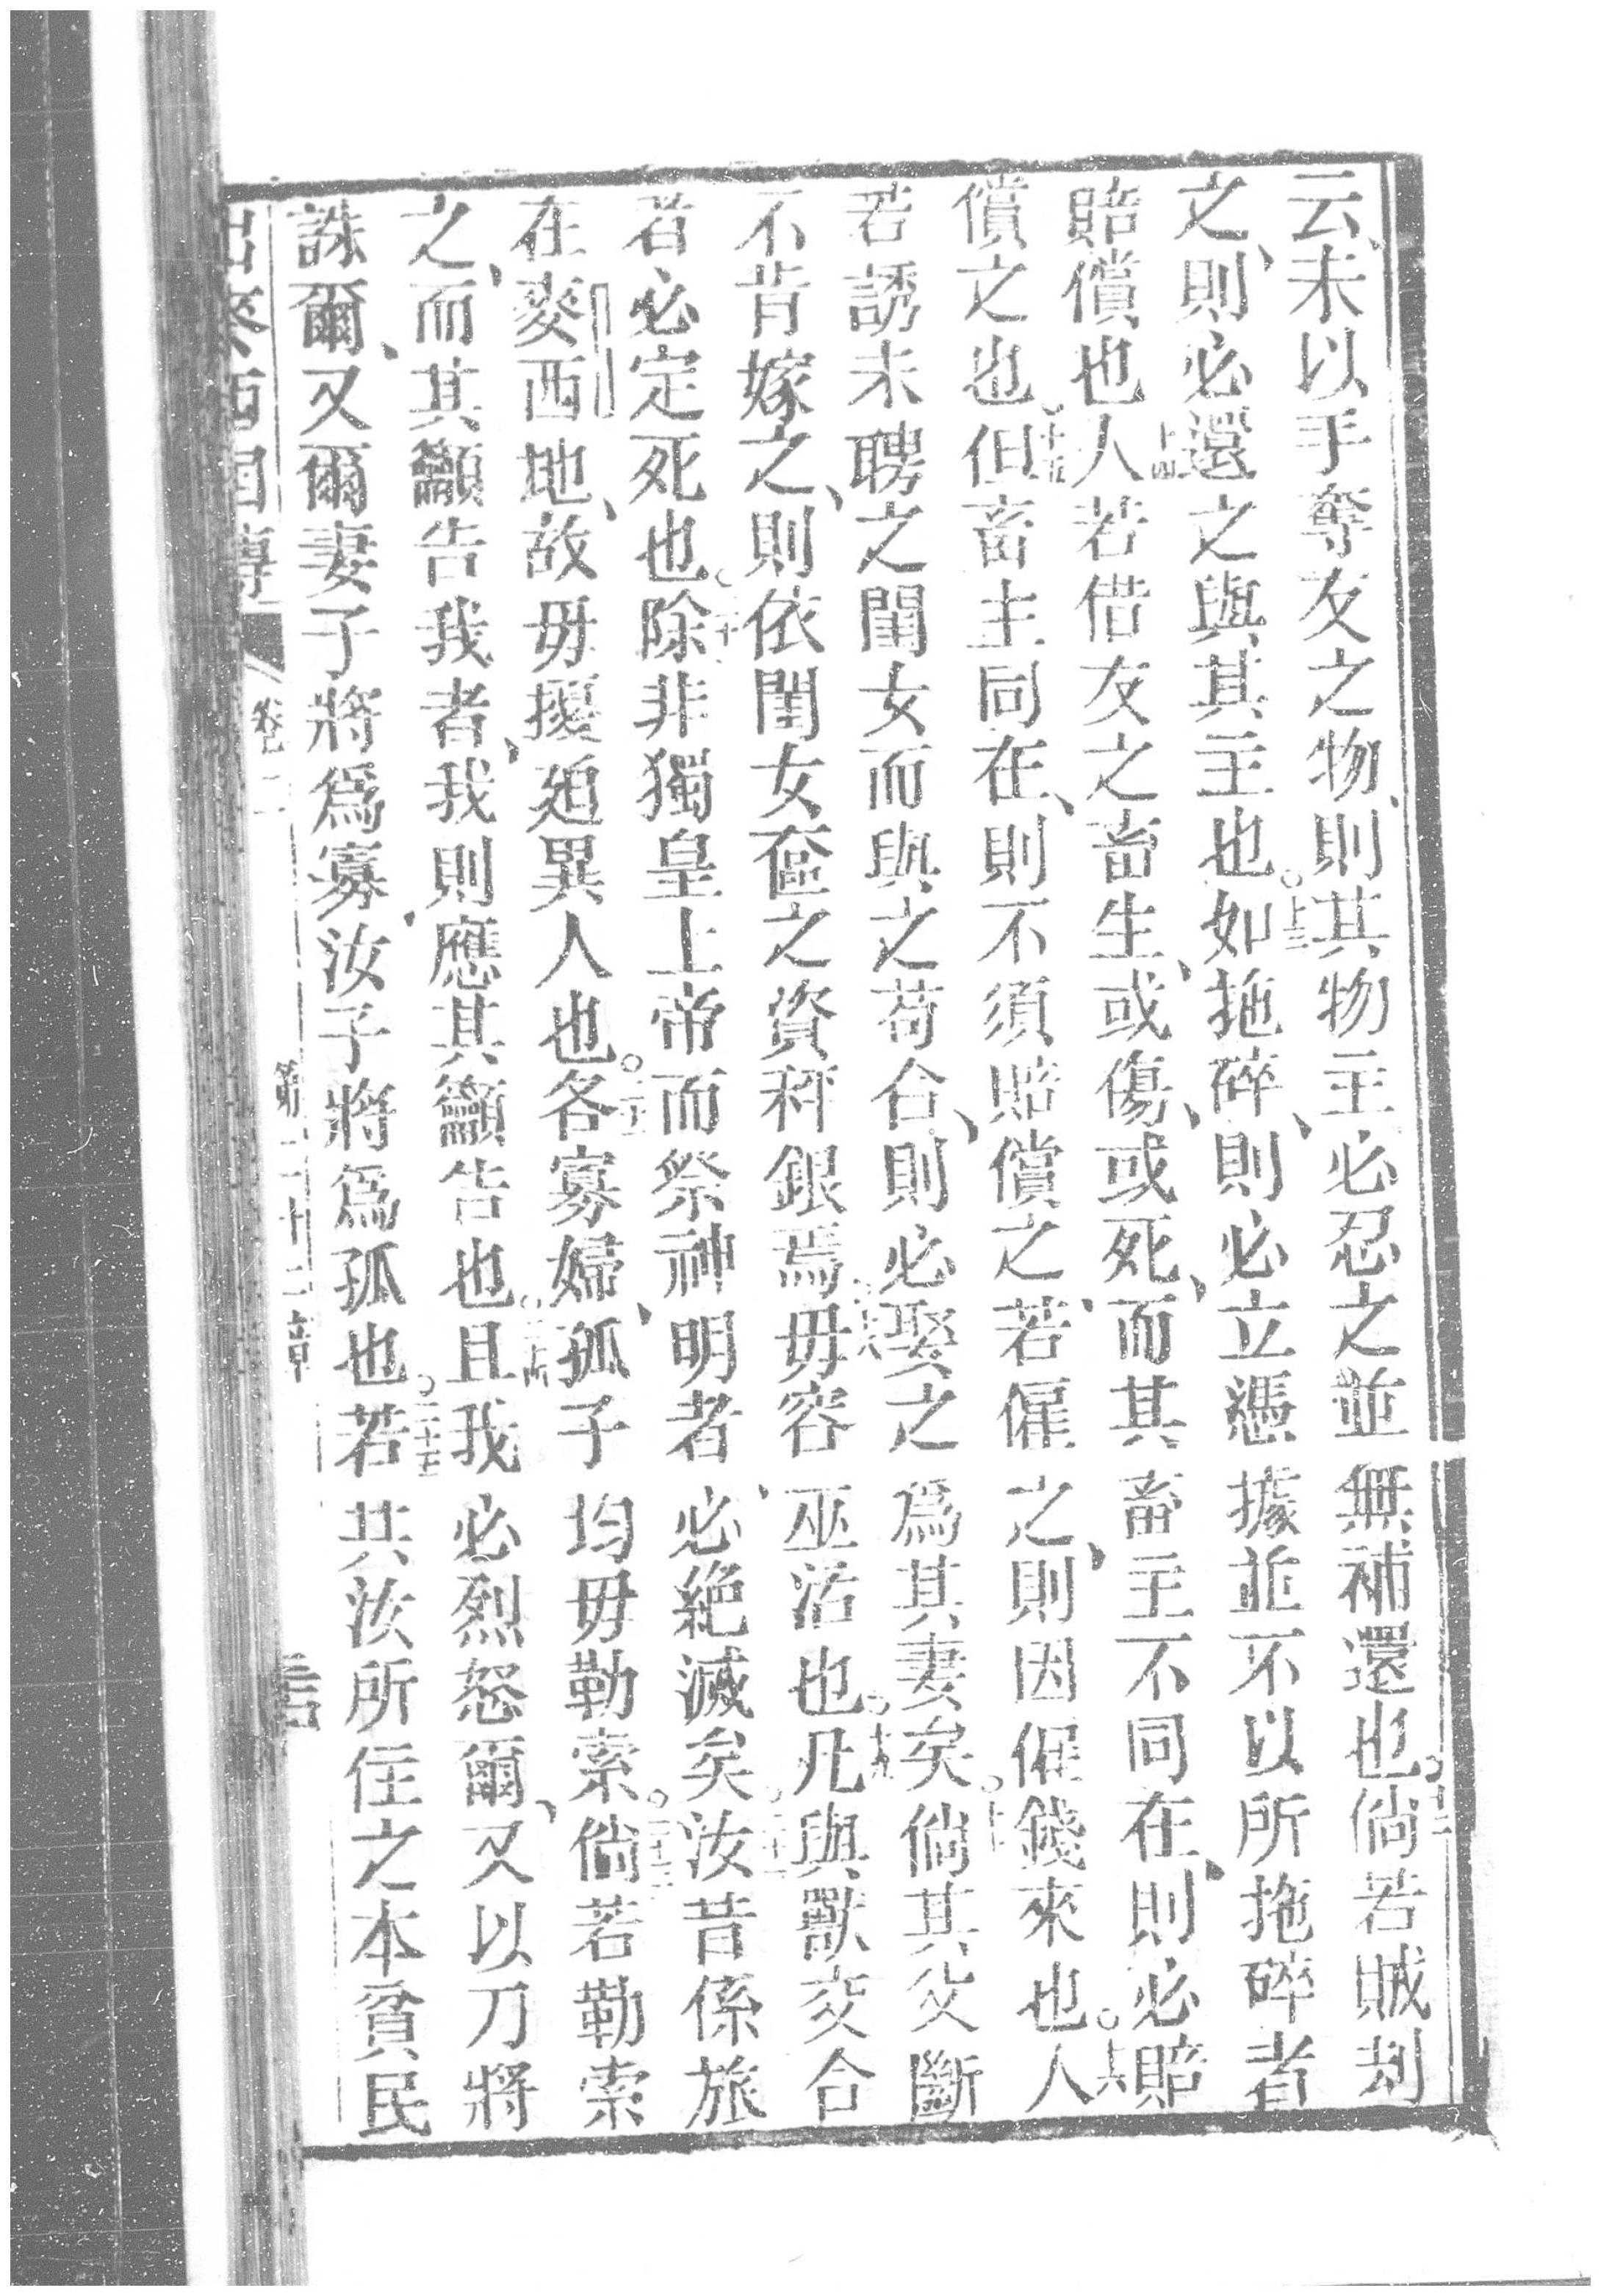 云、未以手奪友之物、則其物主必忍之並無補還也。十二倘若賊刦
之、則必還之與其主也。十三如拖碎、則必立憑據並不以所拖碎者
賠償也十四人若借友之畜生、或傷、或死、而其畜主不同在、則必賠
償之也。十五但畜主同在、則不須賠償之、若僱之、則因僱錢來也。十六人
若誘未聘之閨女而與之苟合、則必娶之為其妻矣。十七倘其父斷
不肯嫁之、則依閨女奩之資秤銀焉。十八毋容巫活也。十九凡與獸交合
者必定死也。二十除非獨皇上帝而祭神明者、必絶滅矣。二十一汝昔係旅
在麥西地、故毋擾廹異人也。二十二各寡婦、孤子均毋勒索。二十三倘若勒索
之、而其籲告我者、我則應其籲告也。二十四且我必烈怒爾、又以刀將
誅爾、又爾妻子將為寡、汝子將為孤也。二十五若共汝所住之本貧民
出麥西國傳 卷二 第二十二章